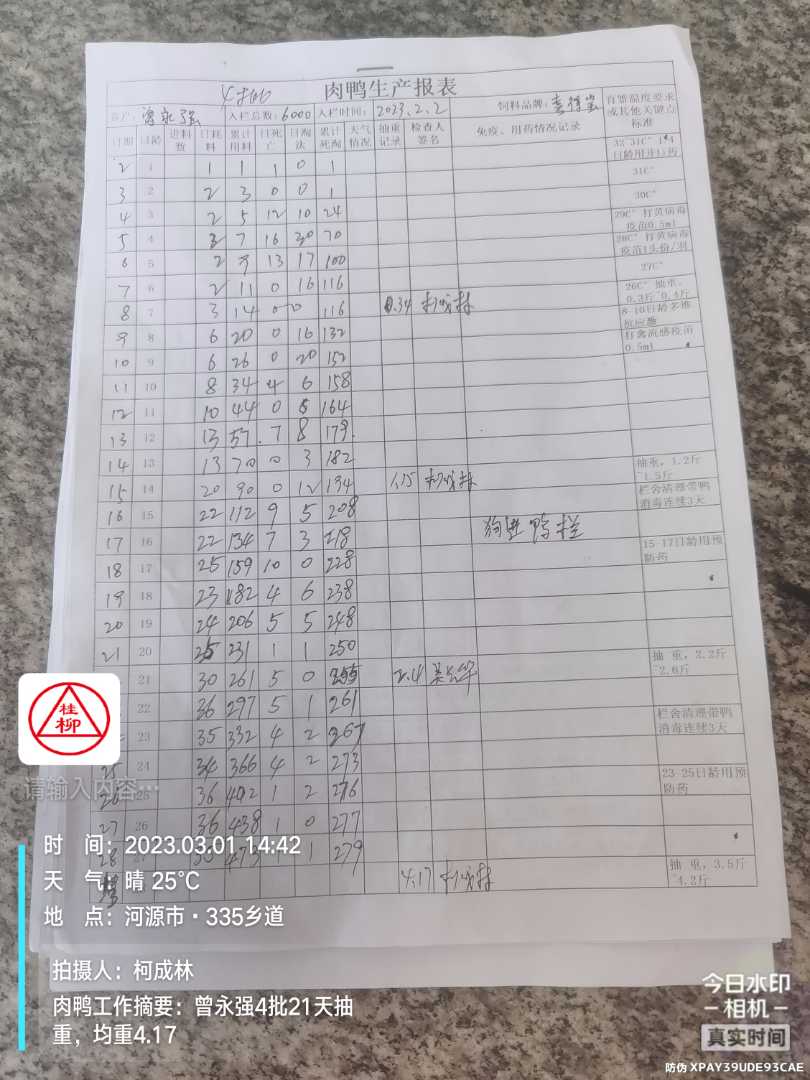 4批
肉鸭生产报表
客户: 曾永强 入栏总数: 6000 入栏时间: 2023.2.2 饲料品牌: 育雏温度要求或其他关键点标准
日期 日龄 进料数 日耗料 累计用料 日死亡 日淘汰 累计死淘 天气情况 抽重记录 检查人签名 免疫、用药情况记录
2 1 1 1 1 0 1
3 2 2 3 0 0 1 31C°
4 3 2 5 12 10 24 30C°
5 4 7 16 30 70 29C° 打黄病毒疫苗0.5ml
6 5 2 9 13 17 100
7 6 2 11 0 16 116 27C°
8 7 3 14 0 0 116 0.34 26C° 抽重，0.3斤~0.4斤
9 8 6 20 0 16 132
10 9 6 26 0 20 152 打禽流感疫苗0.5ml
11 10 8 34 4 6 158
12 11 10 44 0 6 164
13 12 13 57 7 8 179
14 13 13 70 0 3 182
15 14 20 90 0 12 194 1.15 抽重，1.2斤~1.5斤
16 15 22 112 9 5 208 栏舍清理带鸭消毒连续3天
17 16 22 134 7 3 218 狗进鸭栏
18 17 25 159 10 0 228 15-17日龄用预防药
19 18 23 182 4 6 238
20 19 24 206 5 5 248
21 20 25 231 1 1 250
21 30 261 5 0 255 2.4 抽重，2.2斤~2.6斤
22 36 297 5 1 261
23 35 332 4 2 267 栏舍清理带鸭消毒连续3天
24 34 366 4 2 273
26 25 36 402 1 2 276 23-25日龄用预防药
27 26 36 438 1 0 277
28 27 35 473 1 1 279
4.17 抽重，3.5斤~4.2斤
桂柳
请输入内容…
时 间: 2023.03.01 14:42
天 气: 晴 25℃
地 点: 河源市·335乡道
拍摄人: 柯成林
肉鸭工作摘要: 曾永强4批21天抽
重，均重4.17
今日水印
相机
真实时间
防伪 XPAY39UDE93CAE